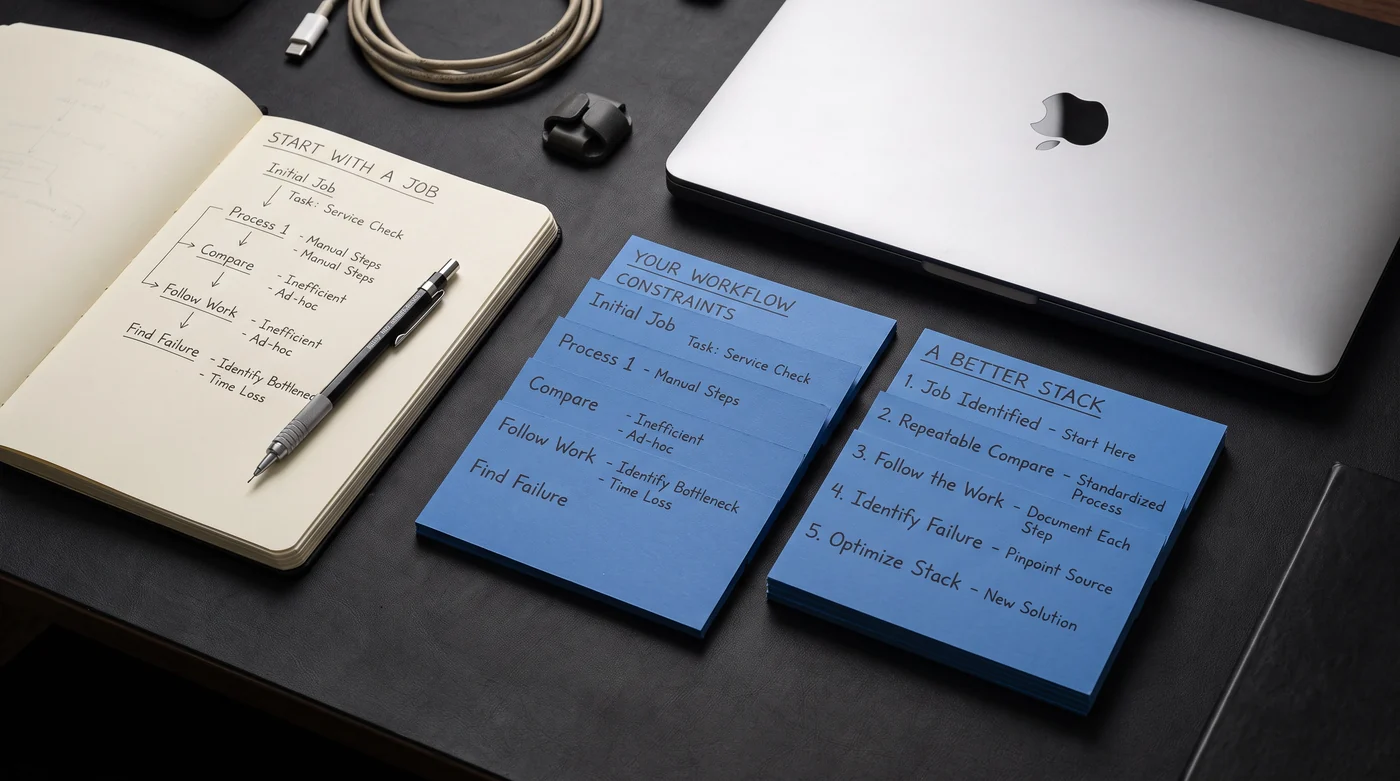 START WITH A JOB
Initial Job
Task: Service Check
Process 1 - Manual Steps
- Manual Steps
Compare - Inefficient
- Ad-hoc
Follow Work - Inefficient
- Ad-hoc
Find Failure - Identify Bottlenec
- Time Loss
YOUR WORKFLOW
CONSTRAINTS
Initial Job Task: Service Check
Process 1 - Manual Steps
Compare - Inefficient
- Ad-hoc
Follow Work - Identify Bottleneck
- Time Loss
Find Failure
A BETTER STACK
1. Job Identified - Start Here
2. Repeatable Compare - Standardized
Process
3. Follow the Work - Document Each
Step
4. Identify Failure - Pinpoint Source
5. Optimize Stack - New Solution